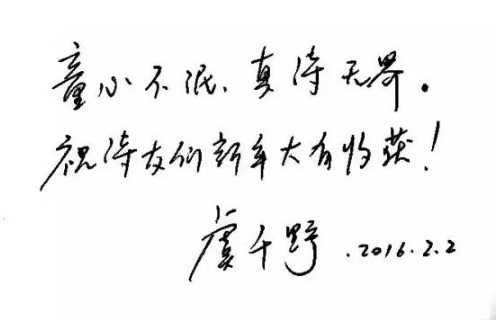 童心不泯、真诗无界。
祝诗友们新年大有收获!
虞千野.2016.2.2